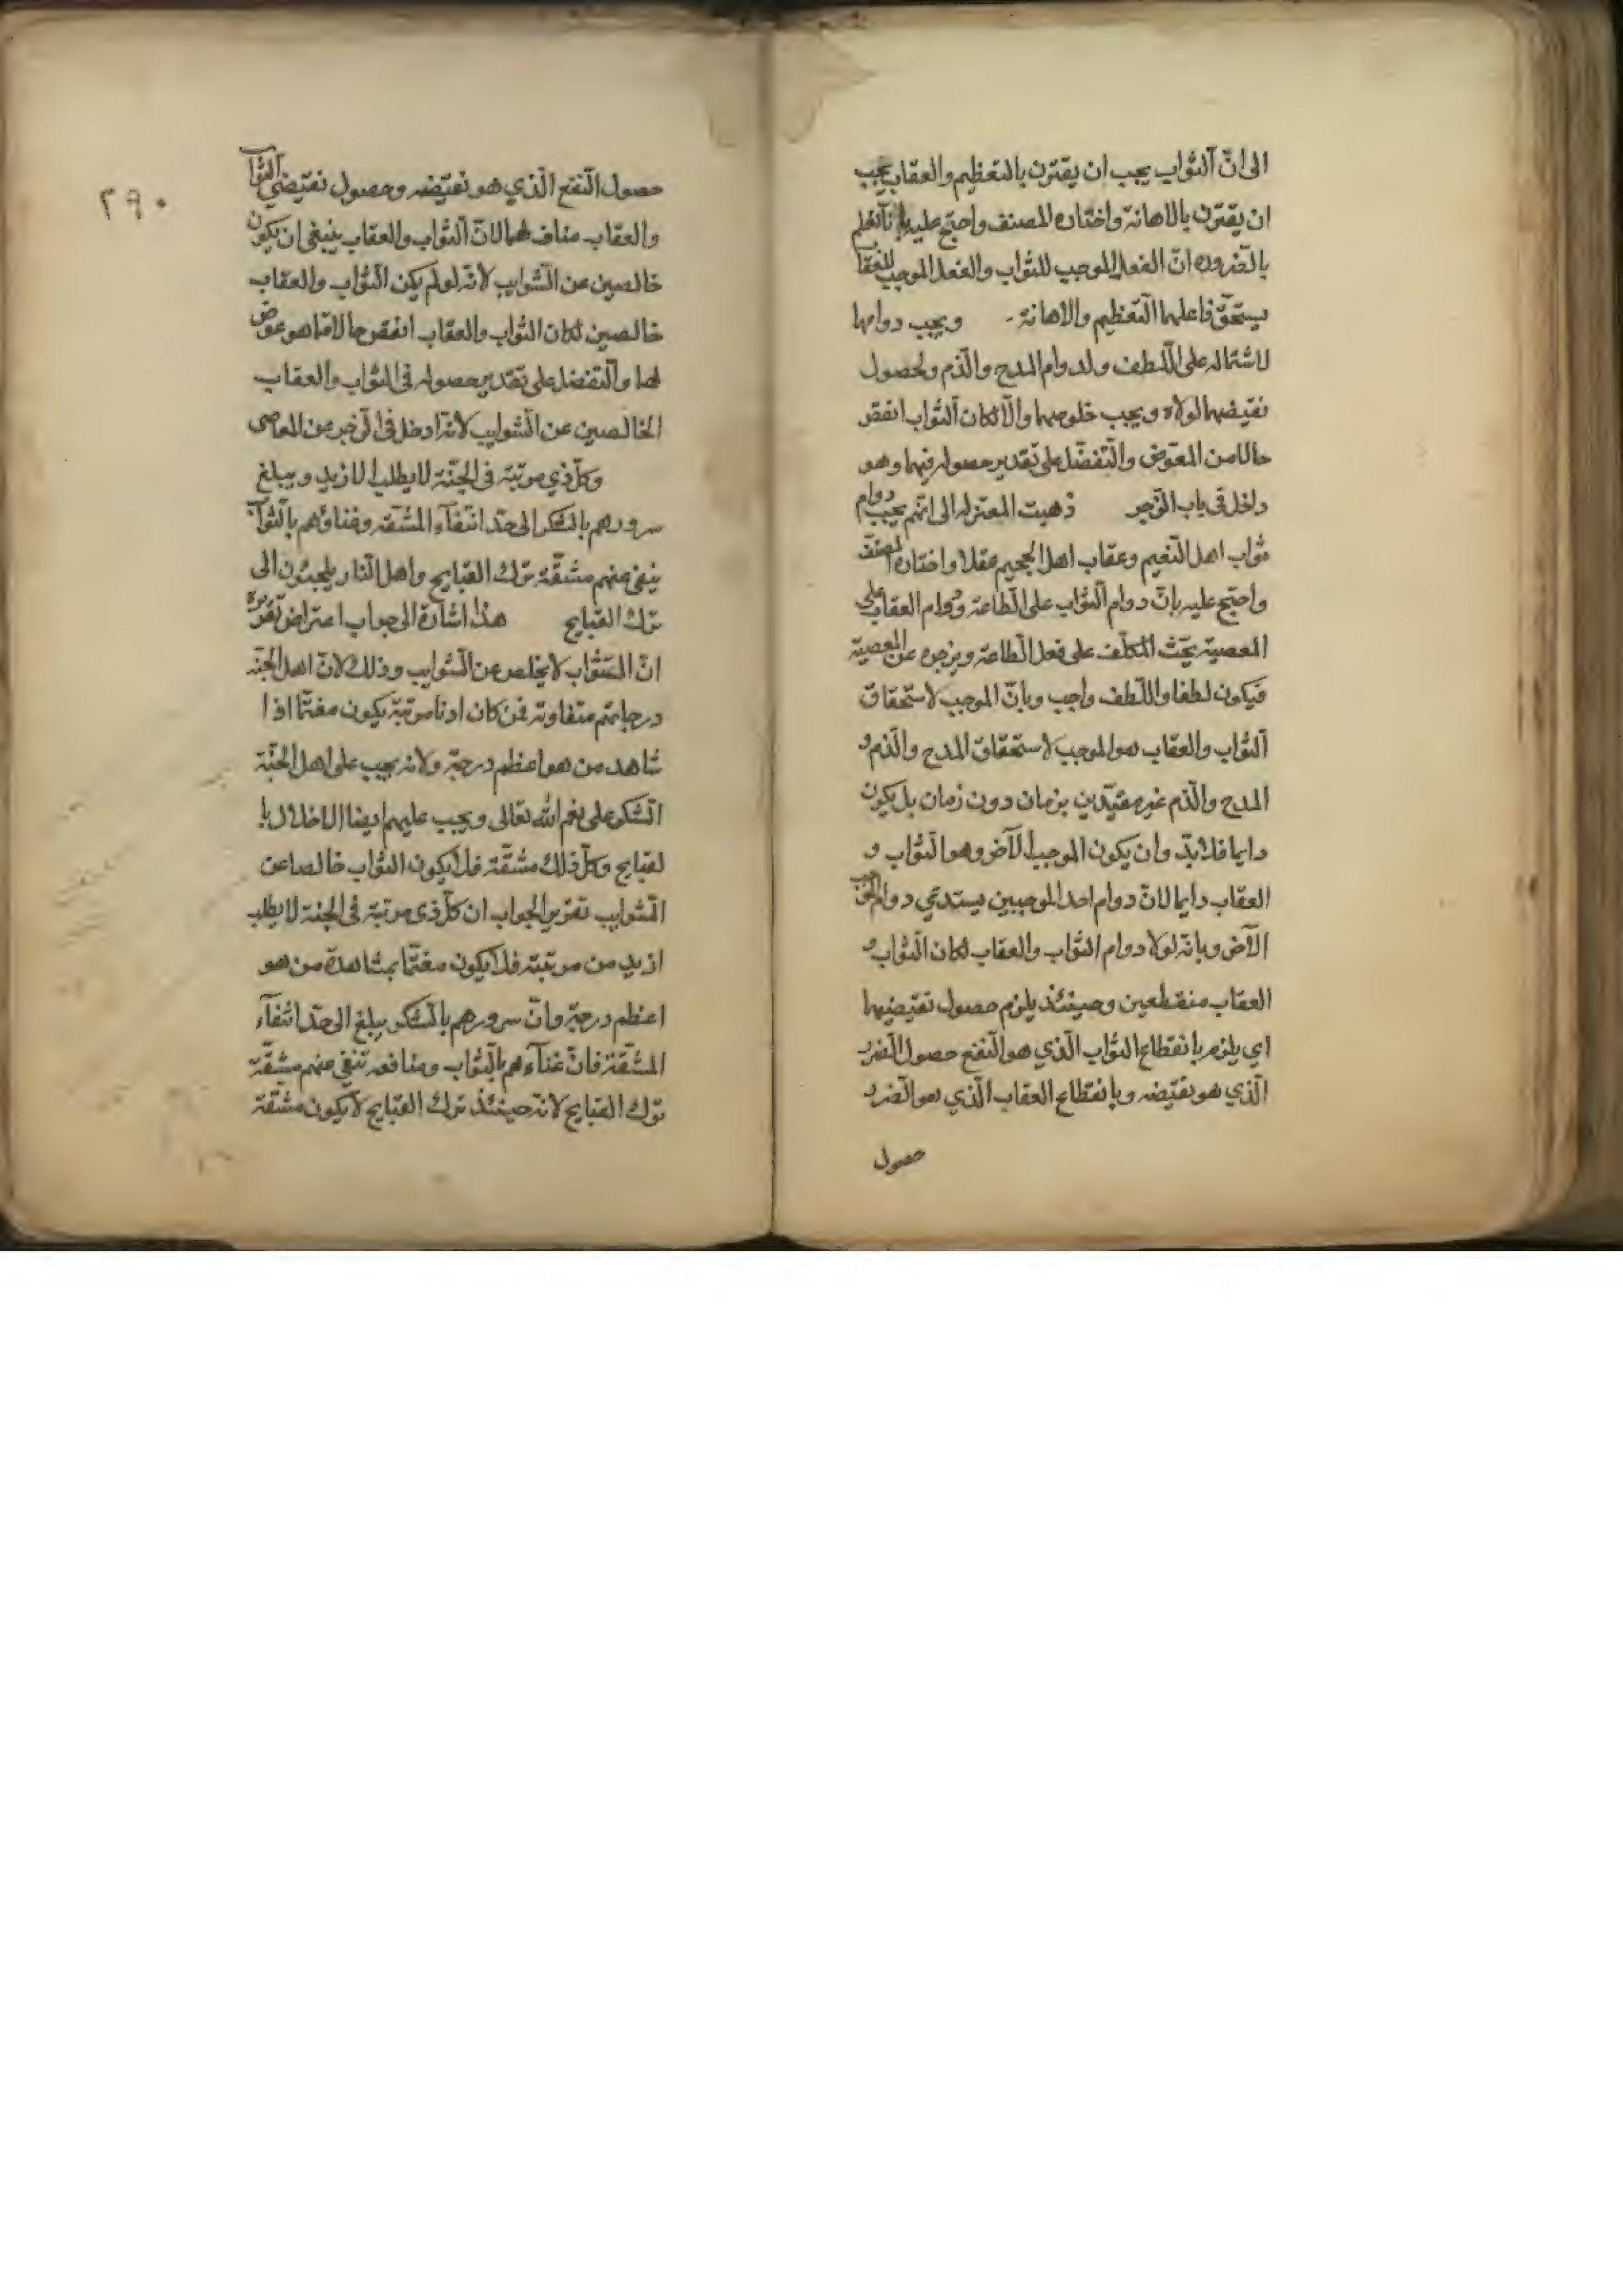 الى انّ الثواب يجب ان يقترن بالتعظيم والعقاب يجب
ان يقترن بالاهانة واختاره المصنف واحتج عليه بانا نعلم
بالضروره انّ الفعل الموجب للثواب والفعل الموجب للعقاب
يستحقّ فاعلهما التعظيم والاهانة ويجب دوامها
لاشتماله على اللّطف ولدوام المدح والذّم ولحصول
نقيضهما لولاه ويجب خلوصهما والّا لكان الثواب انقص
حالا من العوض والتفضّل على تقدير حصوله فيهما وهو
داخل فى باب الزجر ذهبت المعتزله الى انهم يجب دوام
ثواب اهل النعيم وعقاب اهل الجحيم عقلا واختاره المصنف
واحتج عليه بانّ دوام الثواب على الطاعة ودوام العقاب على
المعصية يحثّ المكلّف على فعل الطاعة ويزجره عن المعصية
فيكون لطفا واللّطف واجب وبانّ الموجب لاستحقاق
الثواب والعقاب هو الموجب لاستحقاق المدح والذم و
المدح والذم غير مقيّدين بزمان دون زمان بل يكون
دايما فلا بدّ وان يكون الموجب الآخر وهو الثواب و
العقاب دايما لانّ دوام احد الموجبين يستدعي دوام الموجب
الآخر وبانه لولا دوام الثواب والعقاب لكان الثواب و
العقاب منقطعين وحينئذ يلزم حصول نقيضيهما
اي يلزم بانقطاع الثواب الّذي هو النفع حصول الضرر
الّذي هو نقيضه وبانقطاع العقاب الّذي هو الضرر
حصول
٢٩٠
حصول النفع الّذي هو نقيضه وحصول نقيضي الثواب
والعقاب مناف لهما لانّ الثواب والعقاب ينبغى ان يكون
خالصين عن الشوايب لانه لو لم يكن الثواب والعقاب
خالصين لكان الثواب والعقاب انقص حالا مما هو عوض
لهما والتفضل على تقدير حصوله فى الثواب والعقاب
الخالصين عن الشوايب لانه ادخل فى الزجر عن المعاصى
وكل ذي مرتبة فى الجنّة لا يطلب الازيد ويبلغ
سرورهم بالشكر الى حدّ انتفاء المشقه وغناؤهم بالثواب
ينفى عنهم مشقّة ترك القبايح واهل النار يلجئون الى
ترك القبايح هذا اشارة الى جواب اعتراض تقريره
انّ الثواب لا يخلص عن الشوايب وذلك لانّ اهل الجنّه
درجاتهم متفاوته فمن كان ادنا مرتبة يكون مغتمّا اذا
شاهد من هو اعظم درجة ولانه يجب على اهل الجنّة
الشكر على نعم الله تعالى ويجب عليهم ايضا الاخلال با
لقبايح وكلّ ذلك مشقّة فلا يكون الثواب خالصا عن
الشوايب تقرير الجواب ان كلّ ذى مرتبة فى الجنة لا يطلب
ازيد من مرتبته فلا يكون مغتمّا بمشاهدة من هو
اعظم درجة وانّ سرورهم بالشكر يبلغ الى حدّ انتفاء
المشقّة فانّ غناءهم بالثواب ومنافعه تنفى عنهم مشقّة
ترك القبايح لانه حينئذ ترك القبايح لا يكون مشقّة